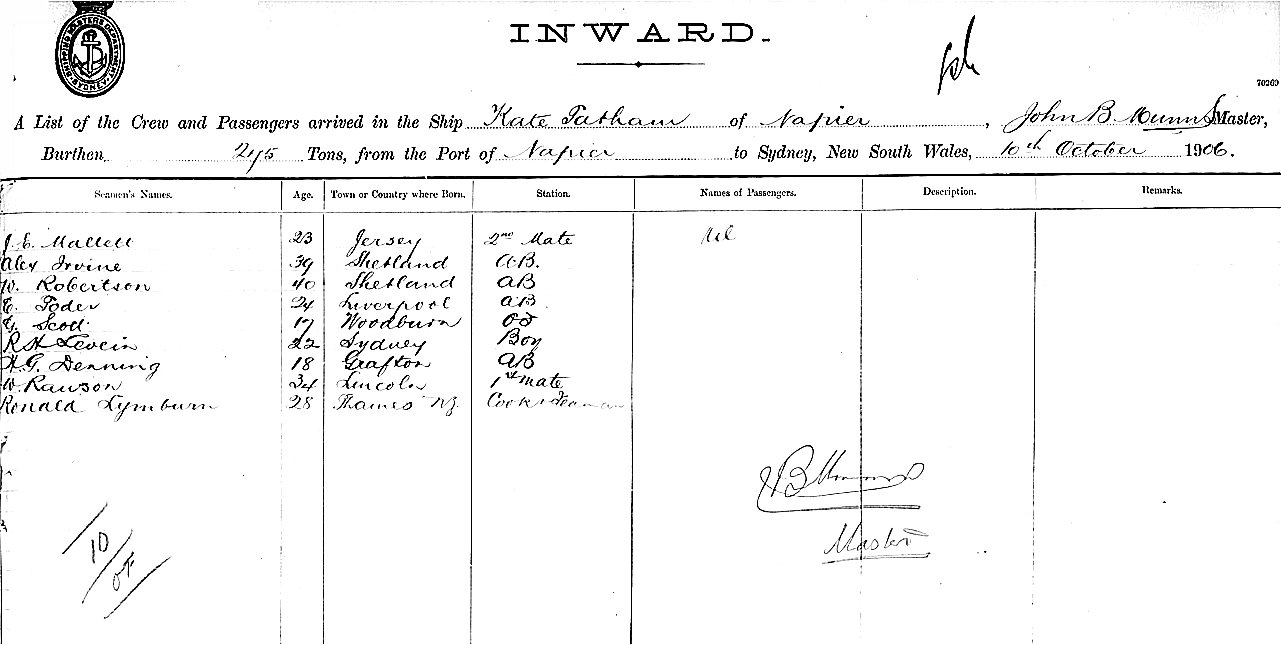 SHIPPING MASTERS DEPARTMENT SYDNEY
INWARD.
70269
A List of the Crew and Passengers arrived in the Ship Kate Tatham of Napier, John B. Munns Master,
Burthen 295 Tons, from the Port of Napier to Sydney, New South Wales, 10th October 1906.
Seamen's Names. Age. Town or Country where Born. Station. Names of Passengers. Description. Remarks.
J. E. Mallett 23 Jersey 2nd Mate Nil
Alex Irvine 39 Shetland A.B.
W. Robertson 40 Shetland AB
E. Foder 24 Liverpool AB
G. Scott 17 Woodburn OS
R H Levein 22 Sydney Boy
H. G. Denning 18 Grafton AB
W. Rawson 34 Lincoln 1st Mate
Ronald Lymburn 28 Thames NZ. Cook & Seaman
JB Munns
Master
10